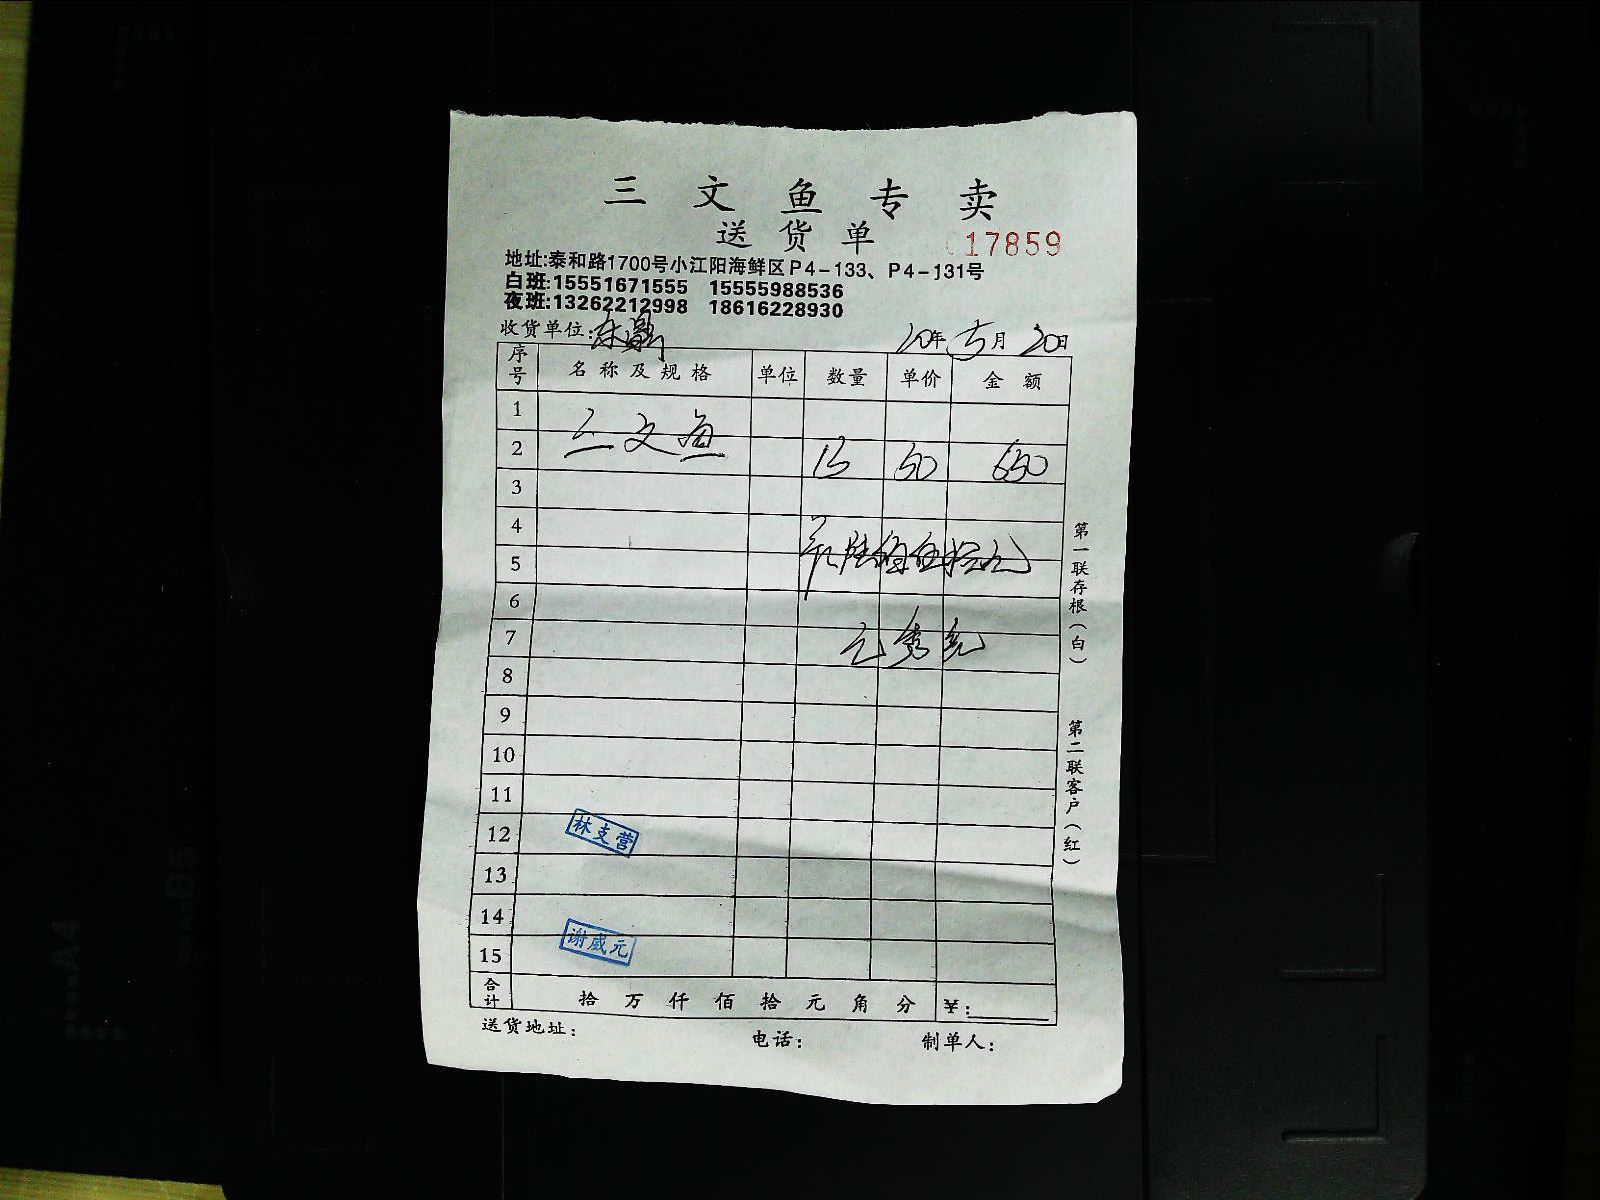 三文鱼专卖
送货单
17859
地址:泰和路1700号小江阳海鲜区P4-133、P4-131号
白班:15551671555 15555988536
夜班:13262212998 18616228930
收货单位:
20年 5月 20日
序号 名称及规格 单位 数量 单价 金额
1
三文鱼
2 13 50 650
3
4
陆佰伍拾元
5
6
7
8
9
10
11
12 林支营
13
14
谢威元
15
合计 拾 万 仟 佰 拾 元 角 分 ¥:
送货地址: 电话: 制单人:
第一联存根(白)
第二联客户(红)